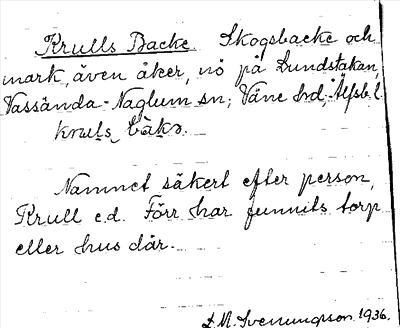 Krulls Backe. Skogsbacke och
mark, även åker, nö på Lundstakan,
Vassända-Naglum sn; Väne hd; Älfsb. l.
kruls bàkə.
Namnet säkert efter person,
Krull e.d. Förr har funnits torp
eller hus där.
D.M. Svenungson 1936.